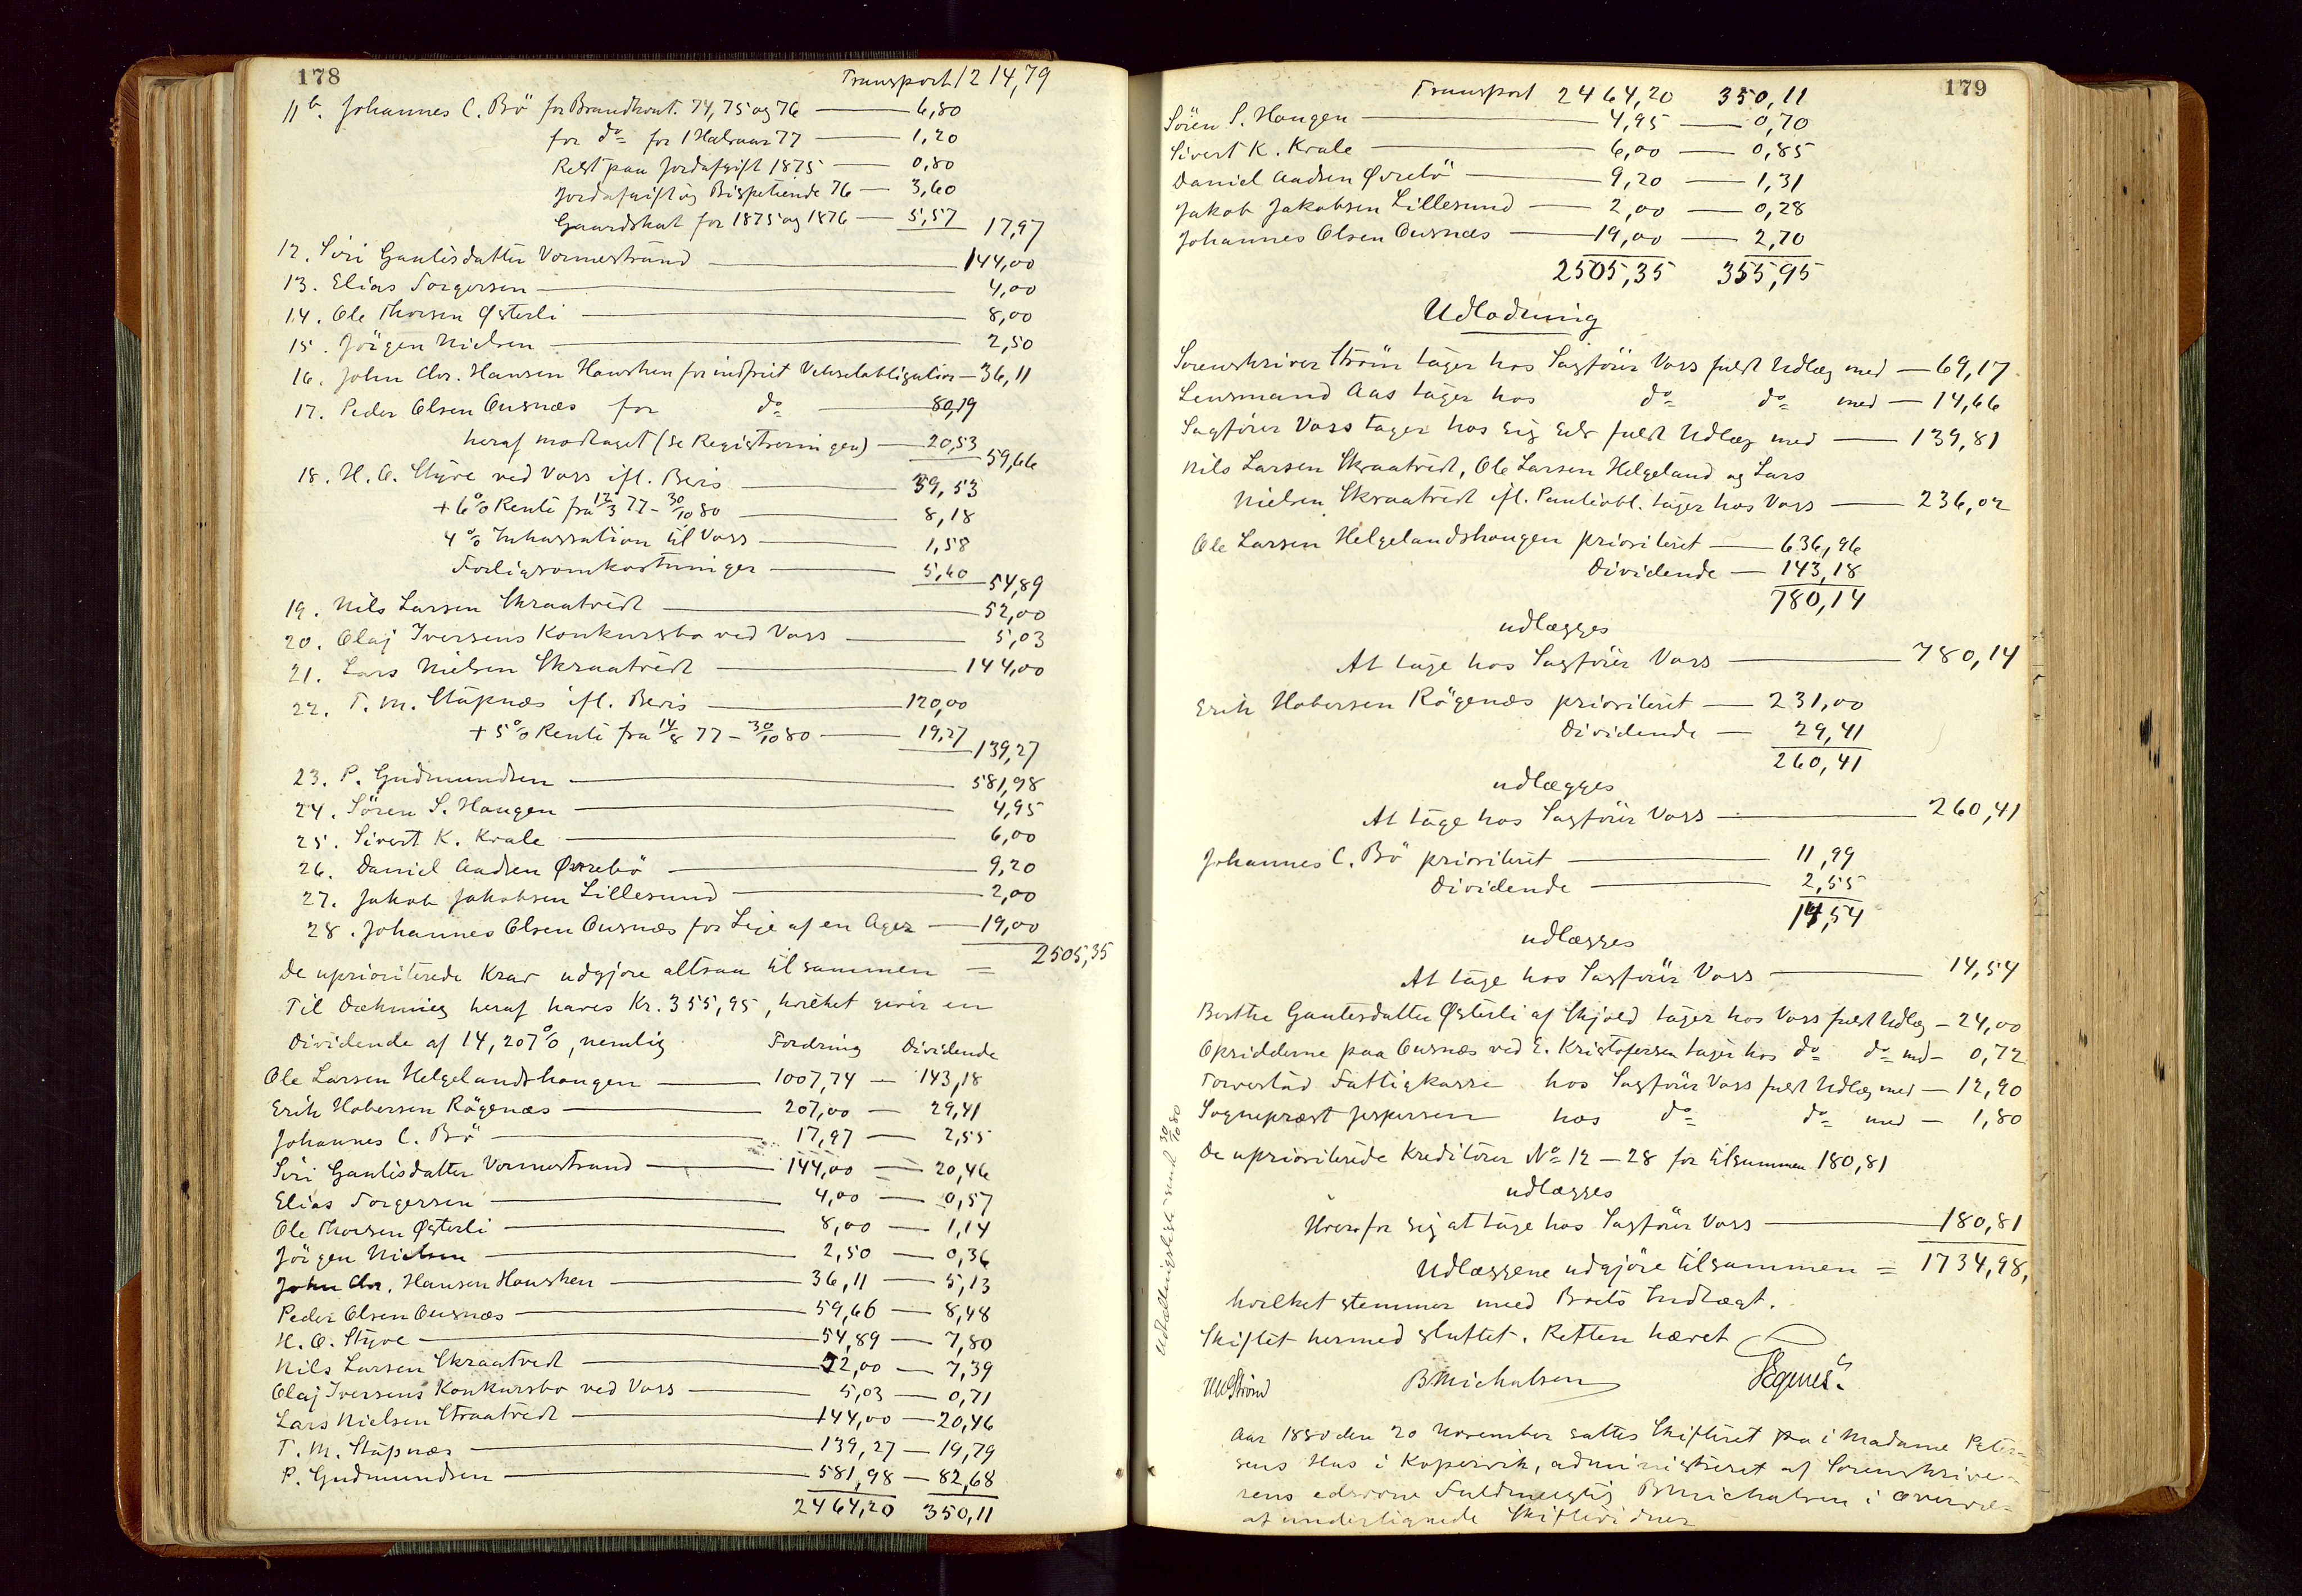 178
Transport 1214,79
11b. Johannes C. Bö for Brandkont. 74, 75 og 76 — 6,80
for do for 1 Halvaar 77 — 1,20
Rest paa Jordafgift 1875 — 0,80
Jordafgift og Bispetiende 76 — 3,60
Gaardskat for 1875 og 1876 — 5,57 17,97
12. Siri Gautesdatter Vormestrand — 144,00
13. Elias Torgersen — 4,00
14. Ole Thorsen Østerli — 8,00
15. Jörgen Nielsen — 2,50
16. John Chr. Hansen Hausken for indfriet Vekselobligation — 36,11
17. Peder Olsen Ousnæs for do — 80,19
heraf modtaget (se Registreringen) — 20,53 59,66
18. H. O. Styve ved Vass ifl. Bevis — 39,53
+ 6% Rente fra 12/3 77 - 30/10 80 — 8,18
4% Inkassation til Vass — 1,58
Forligsomkostninger — 5,60 54,89
19. Nils Larsen Skraatveit — 52,00
20. Olaj Iversens Konkursbo ved Vass — 5,03
21. Lars Nielsen Skraatveit — 144,00
22. T. M. Stapnæs ifl. Bevis — 120,00
+ 5% Rente fra 14/8 77 - 30/10 80 — 19,27 139,27
23. P. Gudmundsen — 581,98
24. Sören S. Haugen — 4,95
25. Sivert K. Krale — 6,00
26. Daniel Aadsen Øvrebö — 9,20
27. Jakob Jakobsen Lillesund — 2,00
28. Johannes Olsen Ousnæs for Leje af en Ager — 19,00
De uprioriterede Krav udgjøre altsaa tilsammen = 2505,35
Til Dækning heraf haves Kr. 355,95, hvilket giver en
Dividende af 14,207%, nemlig Fordring Dividende
Ole Larsen Helgelandshaugen — 1007,74 — 143,18
Erik Habersen Rögenæs — 207,00 — 29,41
Johannes C. Bö — 17,97 — 2,55
Siri Gautesdatter Vormestrand — 144,00 — 20,46
Elias Torgersen — 4,00 — 0,57
Ole Thorsen Østerli — 8,00 — 1,14
Jörgen Nielsen — 2,50 — 0,36
John Chr. Hansen Hausken — 36,11 — 5,13
Peder Olsen Ousnæs — 59,66 — 8,48
H. O. Styve — 54,89 — 7,80
Nils Larsen Skraatveit — 52,00 — 7,39
Olaj Iversens Konkursbo ved Vass — 5,03 — 0,71
Lars Nielsen Skraatveit — 144,00 — 20,46
T. M. Stapnæs — 139,27 — 19,79
P. Gudmundsen — 581,98 — 82,68
2464,20 350,11
179
Transport 2464,20 350,11
Sören S. Haugen — 4,95 — 0,70
Sivert K. Krale — 6,00 — 0,85
Daniel Aadsen Øvrebö — 9,20 — 1,31
Jakob Jakobsen Lillesund — 2,00 — 0,28
Johannes Olsen Ousnæs — 19,00 — 2,70
2505,35 355,95
Udlodning
Sorenskriver Ström tager hos Sagfører Vass fuldt Udlæg med — 69,17
Lensmand Aas tager hos do do med — 14,66
Sagförer Vass tager hos sig selv fuldt Udlæg med — 139,81
Nils Larsen Skraatveit, Ole Larsen Helgeland og Lars
Nielsen Skraatveit ifl. Panteobl. tager hos Vass — 236,02
Ole Larsen Helgelandshaugen prioriteret — 636,96
Dividende — 143,18
780,14
udlægges
At tage hos Sagförer Vass — 780,14
Erik Habersen Rögenæs prioriteret — 231,00
Dividende — 29,41
260,41
udlægges
At tage hos Sagförer Vass — 260,41
Johannes C. Bö prioriteret — 11,99
Dividende — 2,55
14,54
udlægges
At tage hos Sagförer Vass — 14,54
Berthe Gautesdatter Østerli af Skjold tager hos Vass fuldt Udlæg — 24,00
Opsidderne paa Ousnæs ved E. Kristofersen tager hos do do med — 0,72
Torvestad Fattigkasse hos Sagförer Vass fuldt Udlæg med — 12,90
Sognepræst Jespersen hos do do med — 1,80
De uprioriterede Kreditorer No 12 — 28 for tilsammen 180,81
udlægges
Hver for sig at tage hos Sagförer Vass — 180,81
Udlæggene udgjöre tilsammen = 1734,98,
hvilket stemmer med Boets Indtægt.
Skiftet hermed sluttet. Retten hævet
Udtællingsliste sendt 30/10 80
Ström BMichalsen
Aar 1880 den 20 November sattes Skifteret paa i Madame Peter-
sens Hus i Kopervik, administreret af Sorenskrive-
rens edsvorne Fuldmægtig BMichalsen i Overvæ-
af underlignede Skiftevidner